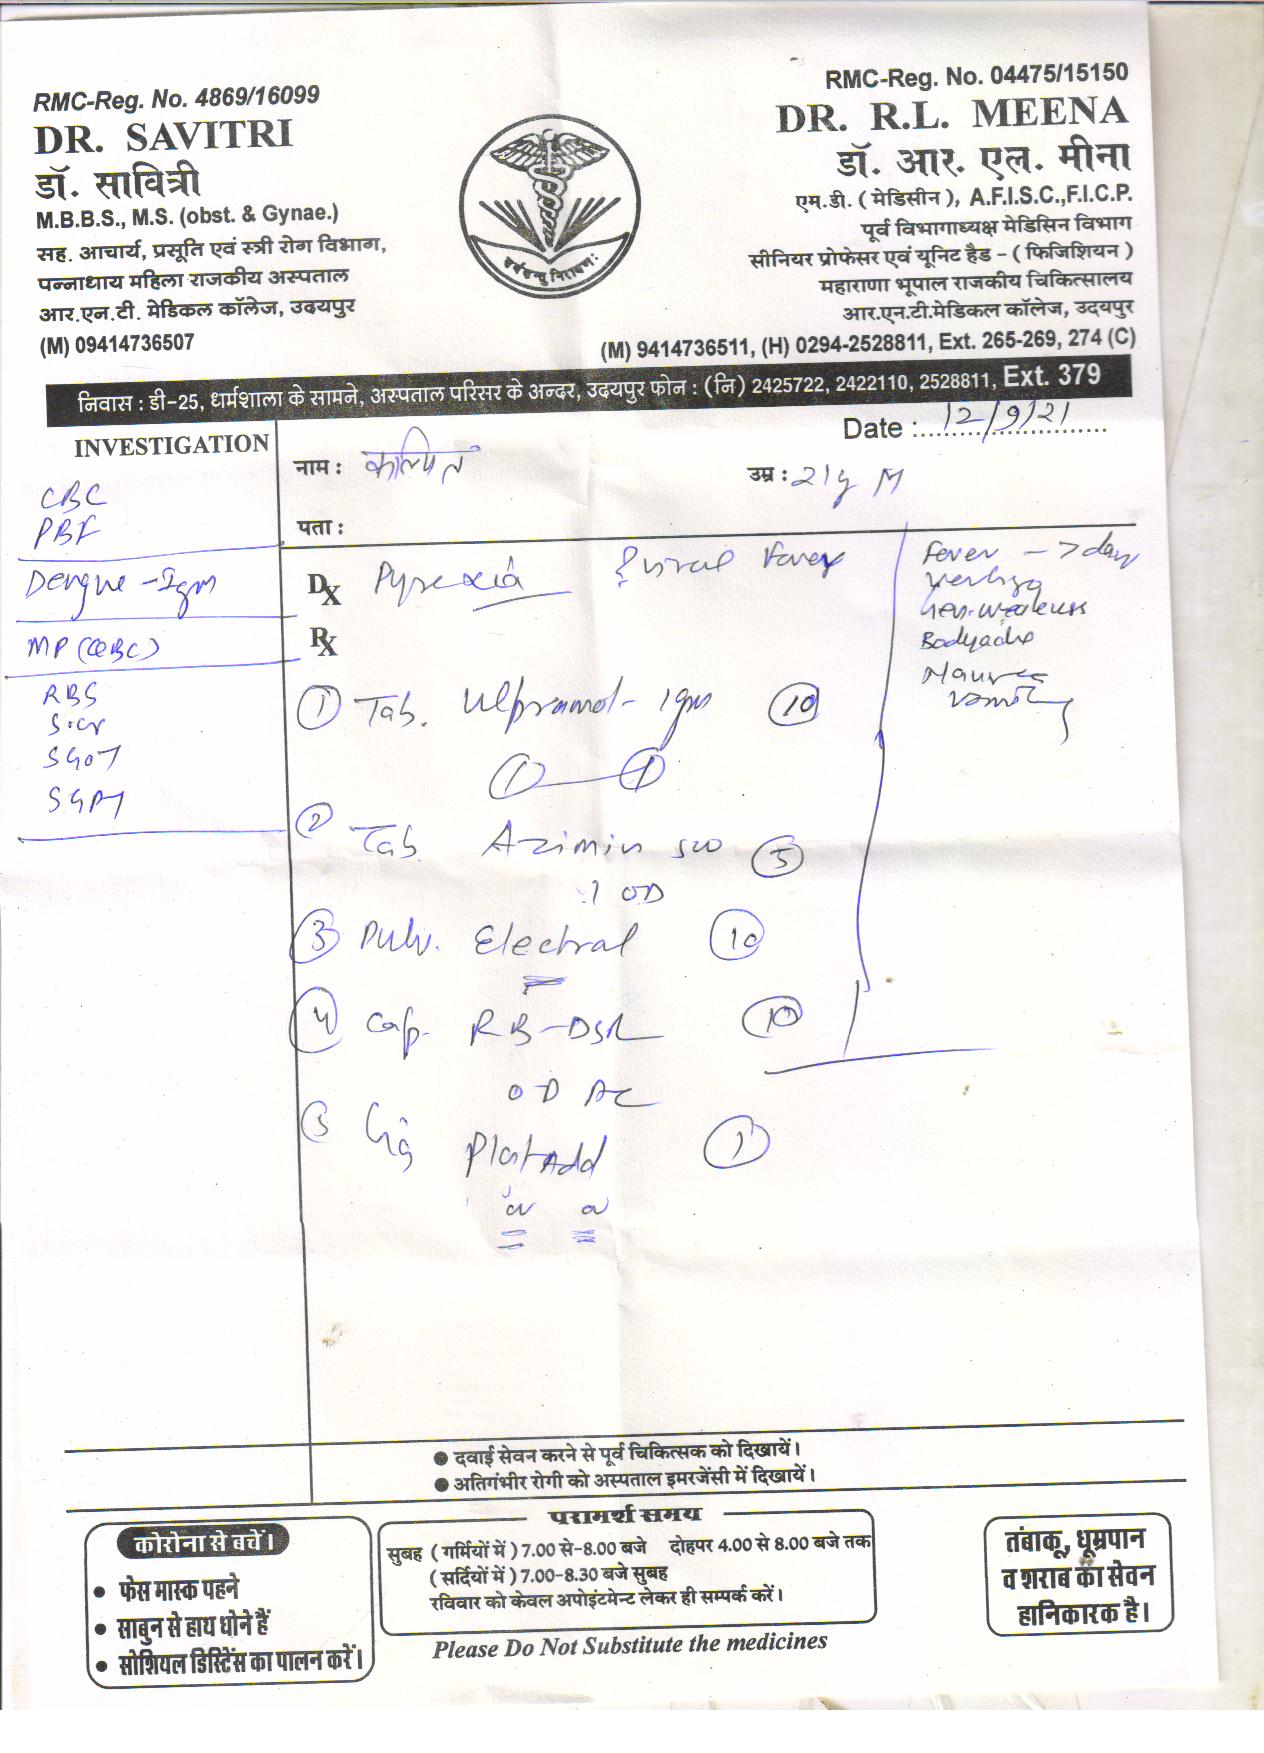 RMC-Reg. No. 4869/16099
DR. SAVITRI
डॉ. सावित्री
M.B.B.S., M.S. (obst. & Gynae.)
सह. आचार्य, प्रसूति एवं स्त्री रोग विभाग,
पन्नाधाय महिला राजकीय अस्पताल
आर.एन.टी. मेडिकल कॉलेज, उदयपुर
(M) 09414736507
RMC-Reg. No. 04475/15150
DR. R.L. MEENA
डॉ. आर. एल. मीना
एम.डी. ( मेडिसीन ), A.F.I.S.C.,F.I.C.P.
पूर्व विभागाध्यक्ष मेडिसिन विभाग
सीनियर प्रोफेसर एवं यूनिट हैड - ( फिजिशियन )
महाराणा भूपाल राजकीय चिकित्सालय
आर.एन.टी.मेडिकल कॉलेज, उदयपुर
(M) 9414736511, (H) 0294-2528811, Ext. 265-269, 274 (C)
निवास : डी-25, धर्मशाला के सामने, अस्पताल परिसर के अन्दर, उदयपुर फोन : (नि) 2425722, 2422110, 2528811, Ext. 379
Date : 12/9/21
नाम :
उम्र : 21y M
पता :
INVESTIGATION
CBC
PBF
Dengue - Igm
MP (QBC)
RBS
S.cr
SGOT
SGPT
Dx Pyrexia Viral Fever
Rx
Fever -
Gen. weakness
Bodyache
Nausea
Vomiting
① Tab. Ulpramol - 1gm ⑩
① — ①
② Tab. Azimin 500 ⑤
1 OD
③ Pulv. Electral ⑩
④ Cap. RB-DSR ⑩
OD AC
⑤ Plat Add ①
● दवाई सेवन करने से पूर्व चिकित्सक को दिखायें।
● अतिगंभीर रोगी को अस्पताल इमरजेंसी में दिखायें।
कोरोना से बचें।
● फेस मास्क पहने
● साबुन से हाथ धोने हैं
● सोशियल डिस्टिेंस का पालन करें।
परामर्श समय
सुबह ( गर्मियों में ) 7.00 से-8.00 बजे दोहपर 4.00 से 8.00 बजे तक
( सर्दियों में ) 7.00-8.30 बजे सुबह
रविवार को केवल अपोइंटमेन्ट लेकर ही सम्पर्क करें।
Please Do Not Substitute the medicines
तंबाकू, धूम्रपान
व शराब का सेवन
हानिकारक है।